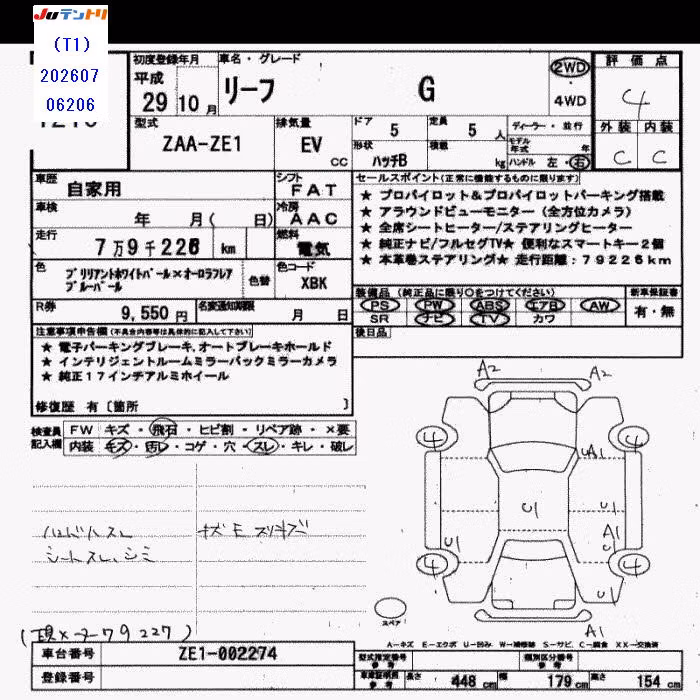 JUテントリ
(T1)
202607
06206
初度登録年月
平成
29 10 月
車名・グレード
リーフ G
2WD
・
4WD
評価点
4
外装 内装
C C
型式
ZAA-ZE1
排気量
EV
CC
ドア 5
定員 5 人
形状
ハッチB
積載
kg
ディーラー・並行
モデル年式 年
ハンドル 左・右
車歴 自家用
シフト
FAT
車検 年 月( 日)
冷房
AAC
走行 7万9千226 km
燃料
電気
色 ブリリアントホワイトパール×オーロラフレア
ブルーパール
色替
色コード
XBK
R券 9,550円
名変通知期限 月 日
セールスポイント(正常に機能するものに限ります)
★ プロパイロット&プロパイロットパーキング搭載
★ アラウンドビューモニター(全方位カメラ)
★ 全席シートヒーター/ステアリングヒーター
★ 純正ナビ/フルセグTV★ 便利なスマートキー2個
★ 本革巻ステアリング★ 走行距離:79226km
装備品(純正品に限り○をつけてください)
PS PW ABS エアB AW
SR ナビ TV カワ
新車保証書
有・無
後日品
注意事項申告欄(不具合内容等は具体的に記入して下さい)
★ 電子パーキングブレーキ,オートブレーキホールド
★ インテリジェントルームミラーバックミラーカメラ
★ 純正17インチアルミホイール
修復歴 有〔箇所 〕
検査員記入欄
FW キズ・飛石・ヒビ割・リペア跡・×要
内装 キズ・汚レ・コゲ・穴・スレ・キレ・破レ
ハンドルスレ
シートスレ、シミ
A2 A2
4 4
UA1
U1
A1
U
U1
4 4
U1
A1
スペア
A-キズ E-エクボ U-凹み W-補修跡 S-サビ C-腐食 XX-交換済
79227)
車台番号 ZE1-002274
登録番号
型式指定番号
参考
類別区分番号
参考
車庫証明用
参考
長さ 448 cm
幅 179 cm
高さ 154 cm